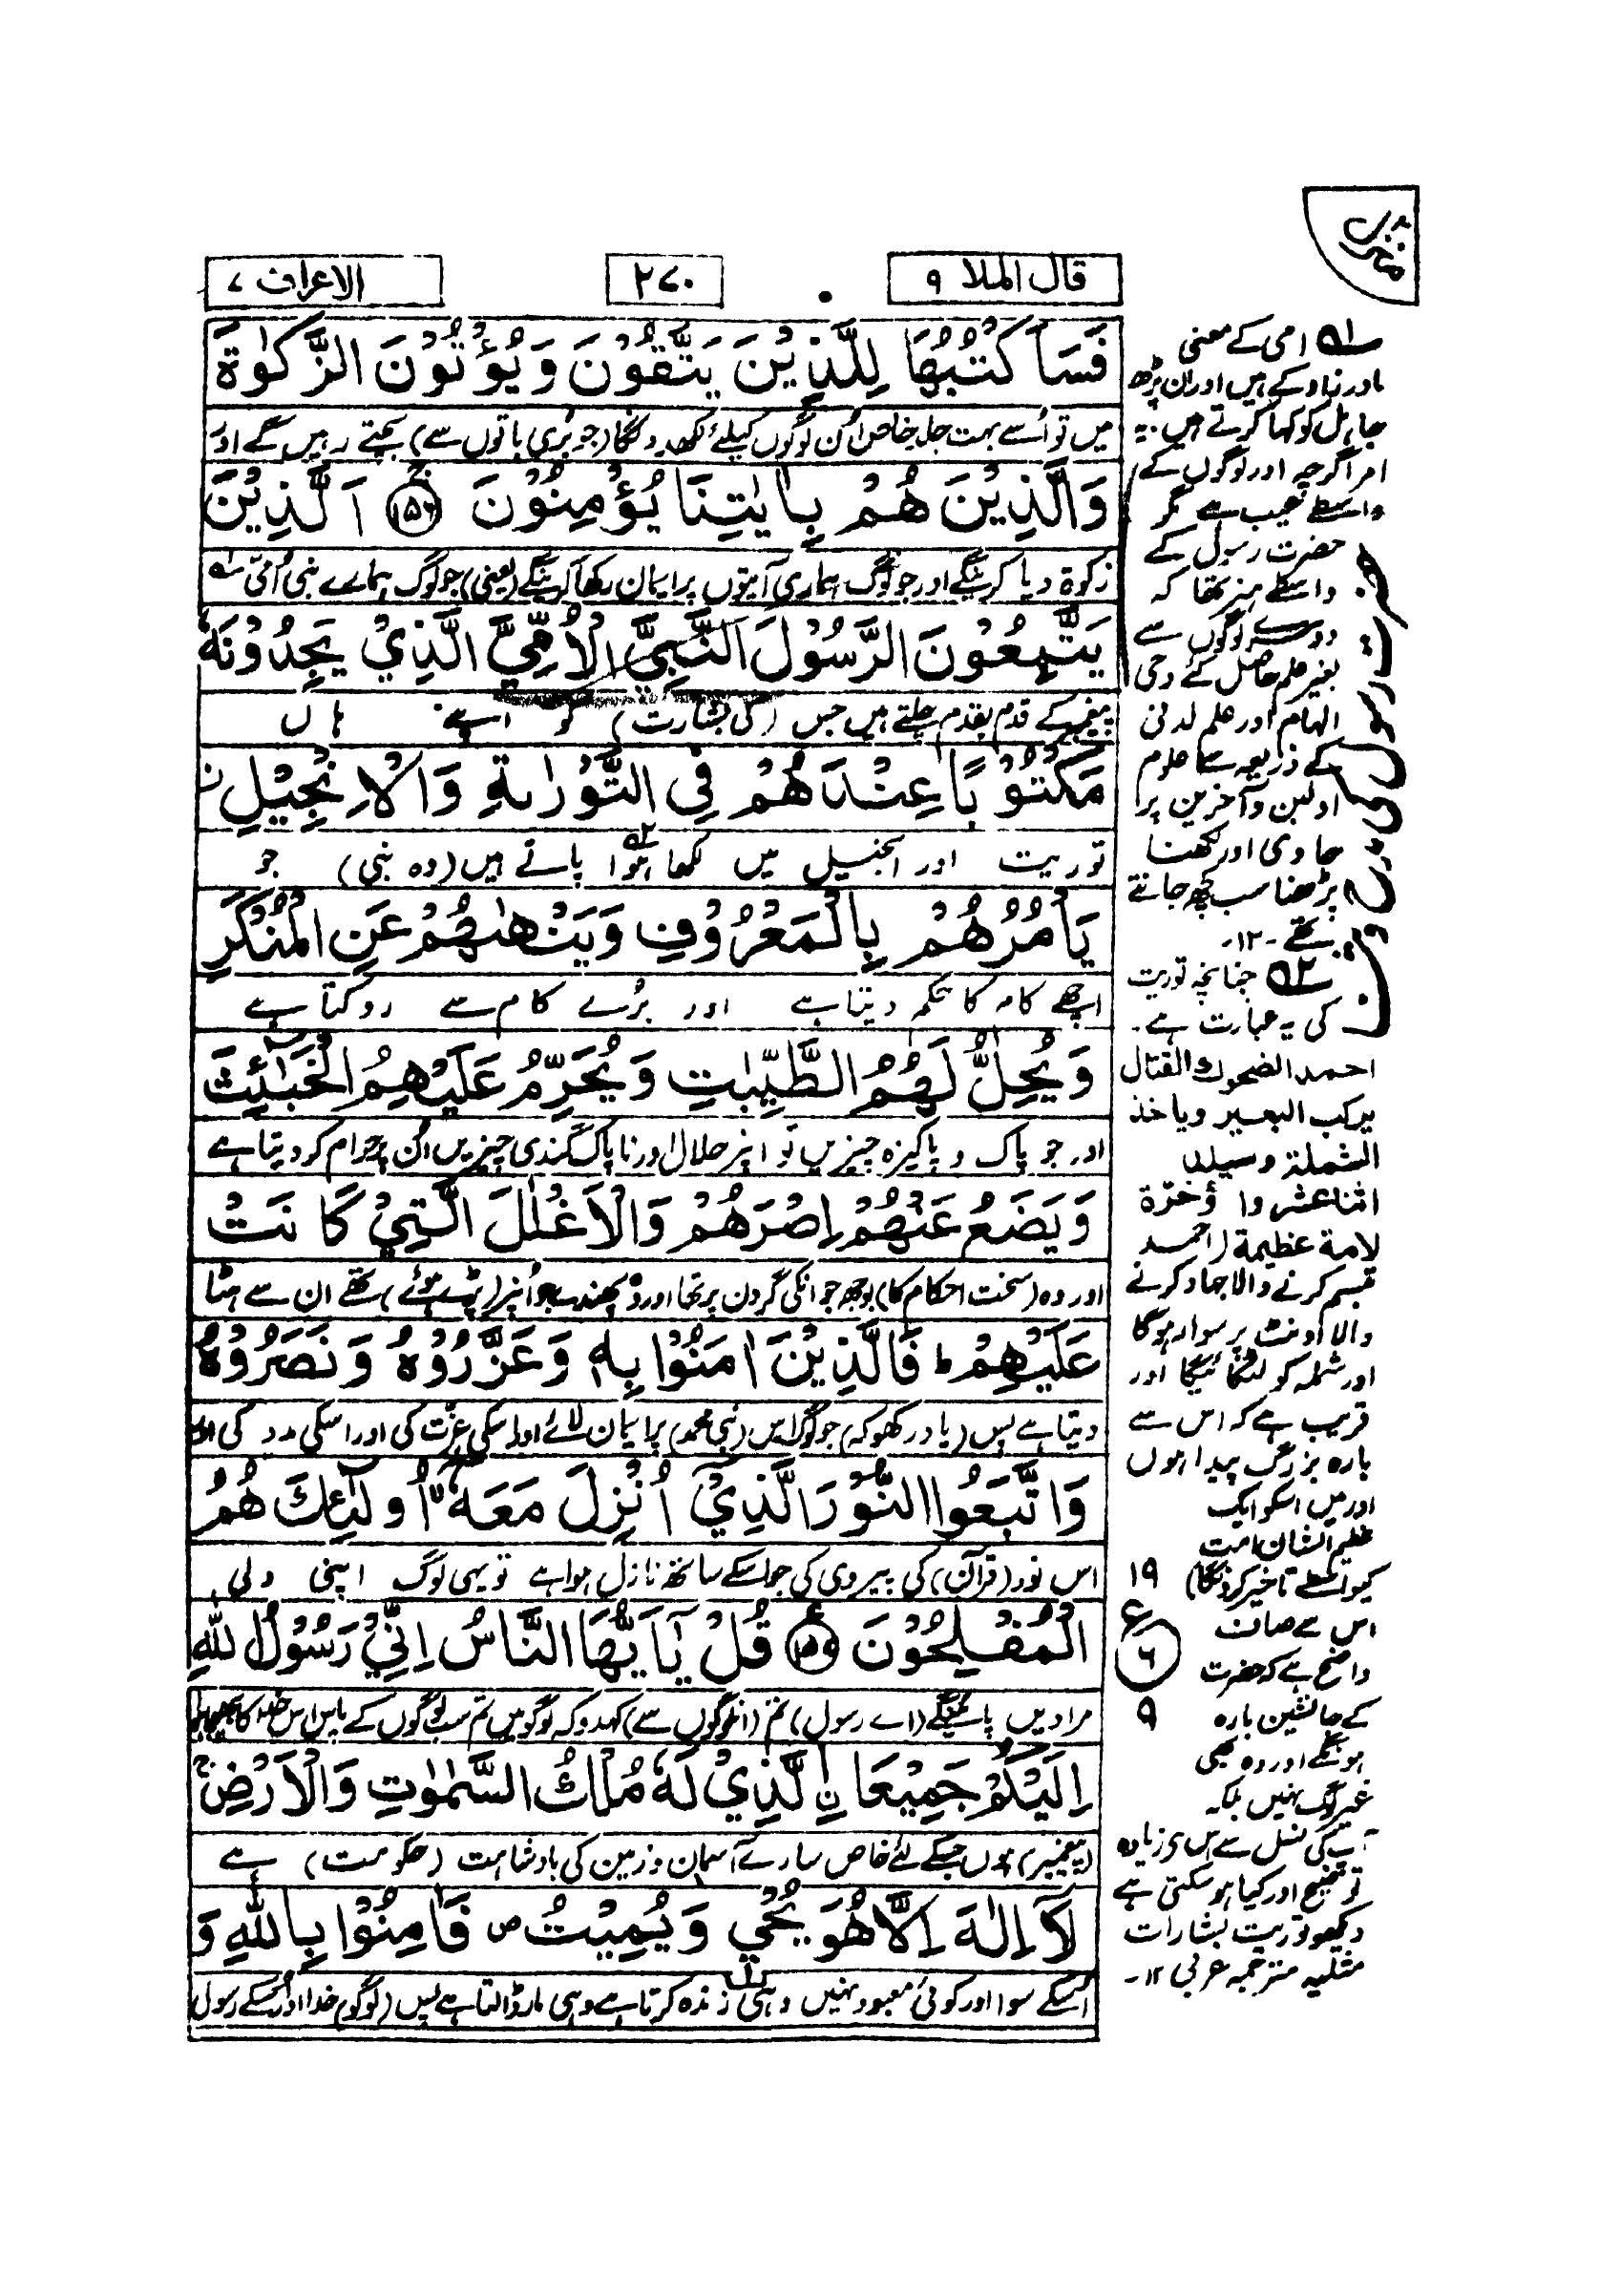 منزل
قال الملا ۹
۲۷۰
الاعراف ۷
فَسَاَكْتُبُهَا لِلَّذِيْنَ يَتَّقُوْنَ وَيُؤْتُوْنَ الزَّكٰوةَ
میں تو اُسے بہت جلد خاص اُن لوگوں کیلئے لکھدونگا (جو بُری باتوں سے) بچتے رہیں گے اور
وَالَّذِيْنَ هُمْ بِاٰيٰتِنَا يُؤْمِنُوْنَ ۱۵۶ اَلَّذِيْنَ
زکوۃ دیا کرینگے اور جو لوگ ہماری آیتوں پر ایمان رکھا کرینگے (یعنی) جو لوگ ہمارے نبی اُمّی ۱
يَتَّبِعُوْنَ الرَّسُوْلَ النَّبِيَّ الْاُمِّيَّ الَّذِيْ يَجِدُوْنَهٗ
پیغمبر کے قدم بقدم چلتے ہیں جس (کی بشارت) کو اپنے ہاں
مَكْتُوْبًا عِنْدَهُمْ فِي التَّوْرٰىةِ وَالْاِنْجِيْلِ
توریت اور انجیل میں لکھا ہوا ۲ پاتے ہیں (وہ نبی) جو
يَاْمُرُهُمْ بِالْمَعْرُوْفِ وَيَنْهٰىهُمْ عَنِ الْمُنْكَرِ
اچھے کام کا حکم دیتا ہے اور بُرے کام سے روکتا ہے
وَيُحِلُّ لَهُمُ الطَّيِّبٰتِ وَيُحَرِّمُ عَلَيْهِمُ الْخَبٰٓئِثَ
اور جو پاک و پاکیزہ چیزیں تو انپر حلال اور ناپاک گندی چیزیں اُن پر حرام کر دیتا ہے
وَيَضَعُ عَنْهُمْ اِصْرَهُمْ وَالْاَغْلٰلَ الَّتِيْ كَانَتْ
اور وہ (سخت احکام کا) بوجھ جو انکی گردن پر تھا اور وہ پھندے جو اُنپر (پڑے ہوئے) تھے ان سے ہٹا
عَلَيْهِمْ ط فَالَّذِيْنَ اٰمَنُوْا بِهٖ وَعَزَّرُوْهُ وَنَصَرُوْهُ
دیتا ہے پس (یاد رکھو کہ) جو لوگ اس (نبی محمدؐ) پر ایمان لائے اور اسکی عزت کی اور اسکی مدد کی اور
وَاتَّبَعُوا النُّوْرَ الَّذِيْٓ اُنْزِلَ مَعَهٗٓ اُولٰٓئِكَ هُمُ
اس نور (قرآن) کی پیروی کی جو اسکے ساتھ نازل ہوا ہے تو یہی لوگ اپنی دلی
الْمُفْلِحُوْنَ ۱۵۷ قُلْ يٰٓاَيُّهَا النَّاسُ اِنِّيْ رَسُوْلُ اللّٰهِ
مرادیں پائینگے (اے رسول) تم (ان لوگوں سے) کہدو کہ لوگو میں تم سب لوگوں کے پاس اس خدا کا بھیجا ہوا
اِلَيْكُمْ جَمِيْعَا ۨ الَّذِيْ لَهٗ مُلْكُ السَّمٰوٰتِ وَالْاَرْضِ
(پیغمبر) ہوں جسکے لئے خاص سارے آسمان و زمین کی بادشاہت (حکومت) ہے
لَآ اِلٰهَ اِلَّا هُوَ يُحْيٖ وَيُمِيْتُ ص فَاٰمِنُوْا بِاللّٰهِ وَ
اسکے سوا اور کوئی معبود نہیں وہی زندہ کرتا ہے وہی مار ڈالتا ہے پس (لوگو) خدا اور اُسکے رسول
۱ امی کے معنی
مادرزاد کے ہیں اور ان پڑھ
جاہل کو کہا کرتے ہیں۔ یہ
امر اگرچہ اور لوگوں کے
واسطے عیب ہے مگر
حضرت رسول کے
واسطے ہنر تھا کہ
دوسرے لوگوں سے
بغیر علم حاصل کئے وحی
الہام اور علم لدنی
کے ذریعہ سے علوم
اولین و آخرین پر
حاوی اور لکھنا
پڑھنا سب کچھ جانتے
تھے۔ ۱۲۔
۲ چنانچہ توریت
کی یہ عبارت ہے۔
احمد الضحوك والقتال
يركب البعير وياخذ
الشملة وسيلد
اثنا عشر وا ؤخرة
لامة عظيمة (احمد
تبسم کرنے والا جہاد کرنے
والا اونٹ پر سوار ہوگا
اور شملہ کو لٹکائیگا اور
قریب ہے کہ اس سے
بارہ بزرگ پیدا ہوں
اور میں اسکو ایک
عظیم الشان امت
کیواسطے تاخیر کرونگا)
۱۹
ع
۶
۹
اس سے صاف
واضح ہے کہ حضرت
کے جانشین بارہ
ہونگے اور وہ بھی
غیر لوگ نہیں بلکہ
آپ کی نسل سے اس سے زیادہ
توضیح اور کیا ہو سکتی ہے
دیکھو توریت بشارات
مثلیہ مترجمہ عربی ۱۲۔